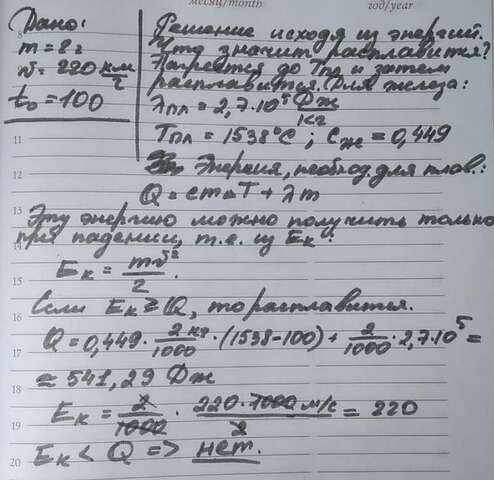 месяц/month
год/year
Дано:
m = 2 г
v = 220 км/г
t₀ = 100
Решение исходя из энергий.
Что значит расплавится?
Нагреется до Tпл и затем
расплавится. Для железа:
λпл = 2,7·10⁵ Дж/кг
Tпл = 1538°C ; Cж = 0,449
Энергия, необход. для плав.:
Q = cmΔT + λm
Эту энергию можно получить только
при падении, т.е. из Eк:
Eк = mv²/2.
Если Eк ≥ Q, то расплавится.
Q = 0,449 · 2 кг/1000 · (1538-100) + 2/1000 · 2,7·10⁵ =
≃ 541,29 Дж
Eк = 2/1000 · 220·1000 м/с / 2 = 220
Eк < Q => нет.
8
11
12
13
14
15
16
17
18
19
20